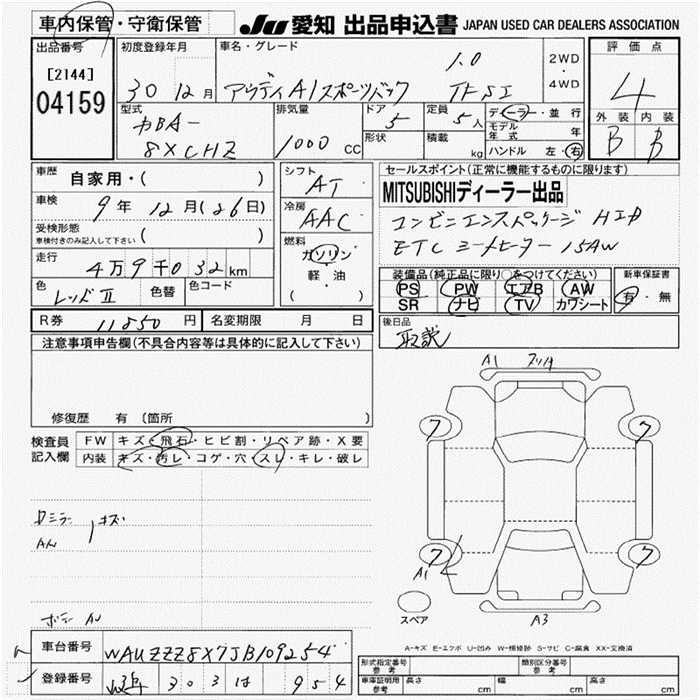 車内保管・守衛保管 JU 愛知 出品申込書 JAPAN USED CAR DEALERS ASSOCIATION
出品番号
[2144]
04159
初度登録年月
30 12月
車名・グレード
アウディA1スポーツバック 1.0 TFSI
2WD
・
4WD
評価点
4
外装 内装
B B
型式
DBA-
8XCHZ
排気量
1000 CC
ドア
5
形状
定員
5人
積載
kg
ディーラー・並行
モデル年式 年
ハンドル 左・右
車歴
自家用・( )
車検
9年 12月(26日)
受検形態
車検付きのみ記入して下さい ( )
走行
4万9千032km
色
レッドII
色替
色コード
シフト
AT
冷房
AAC
燃料
ガソリン
軽・油
( )
セールスポイント(正常に機能するものに限ります)
MITSUBISHIディーラー出品
コンビニエンスパッケージ HID
ETC シートヒーター 15AW
装備品(純正品に限り○をつけてください)
PS PW エアB AW
SR ナビ TV カワシート
新車保証書
有・無
後日品
取説
R券 11850円 名変期限 月 日
注意事項申告欄(不具合内容等は具体的に記入して下さい)
修復歴 有 〔箇所
検査員
記入欄
FW キズ・飛石・ヒビ割・リペア跡・X要
内装 キズ・汚レ・コゲ・穴・スレ・キレ・破レ
A1
7 7
7 7
A1
スペア
A3
A-キズ E-エクボ U-凹み W-補修跡 S-サビ C-腐食 XX-交換済
車台番号
WAUZZZ8X7JB109254
登録番号
303 は 954
形式指定番号
参考
類別区分番号
参考
車庫証明用
参考
長さ cm 幅 cm 高さ cm